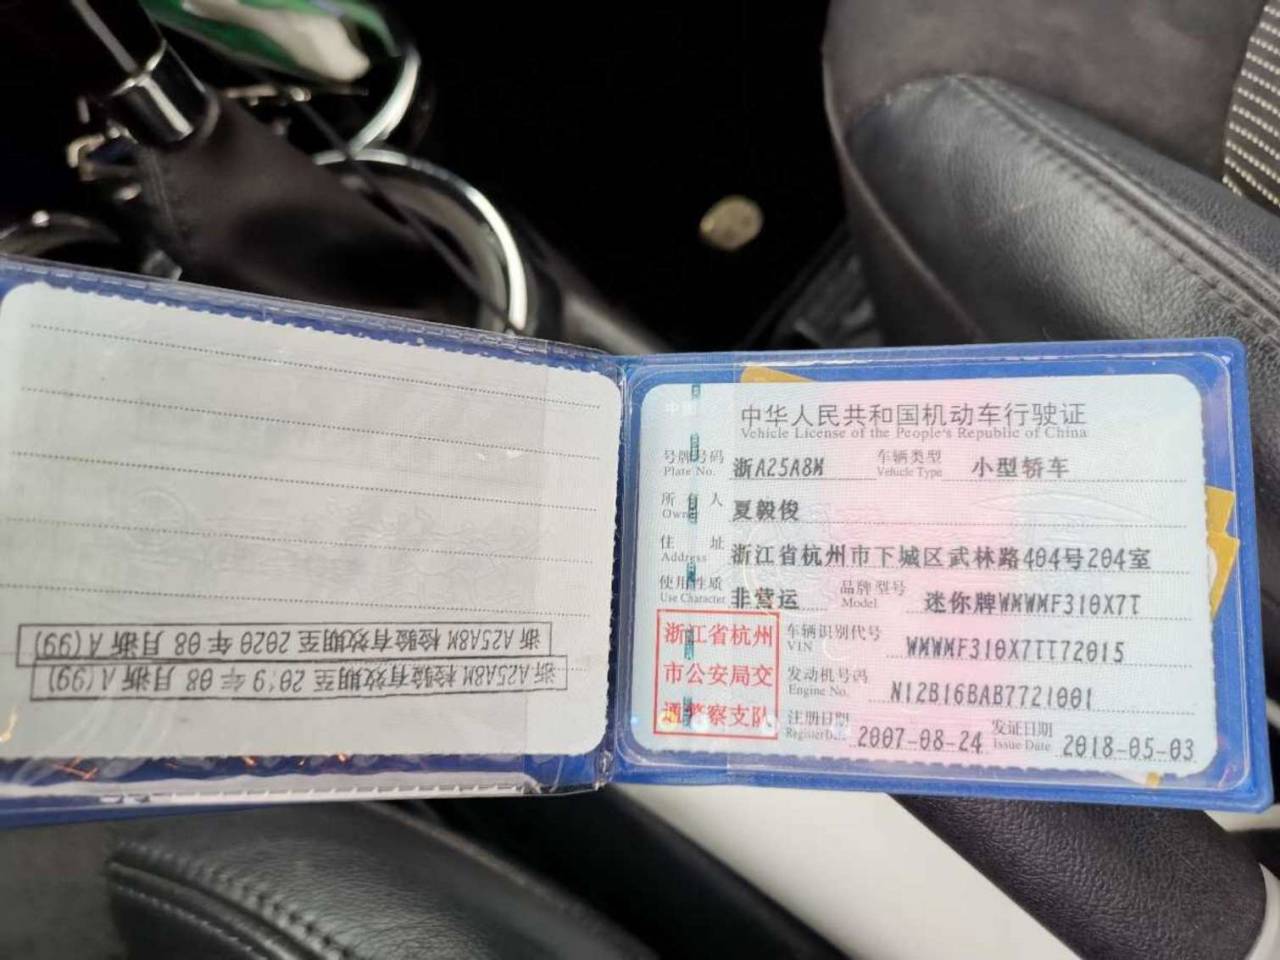 浙A25A8M 检验有效期至 2020 年 08 月浙 A (99)
浙 A25A8M 检验有效期至 2019 年 08 月浙 A (99)
中华人民共和国机动车行驶证
Vehicle License of the People's Republic of China
号牌号码 浙A25A8M 车辆类型 小型轿车
Plate No. Vehicle Type
所有人 夏毅俊
Owner
住址 浙江省杭州市下城区武林路404号204室
Address
使用性质 非营运 品牌型号 迷你牌WMWMF310X7T
Use Character Model
浙江省杭州
市公安局交
通警察支队
车辆识别代号 WMWMF310X7TT72015
VIN
发动机号码 N12B16BAB7721001
Engine No.
注册日期 2007-08-24 发证日期 2018-05-03
Register Date Issue Date